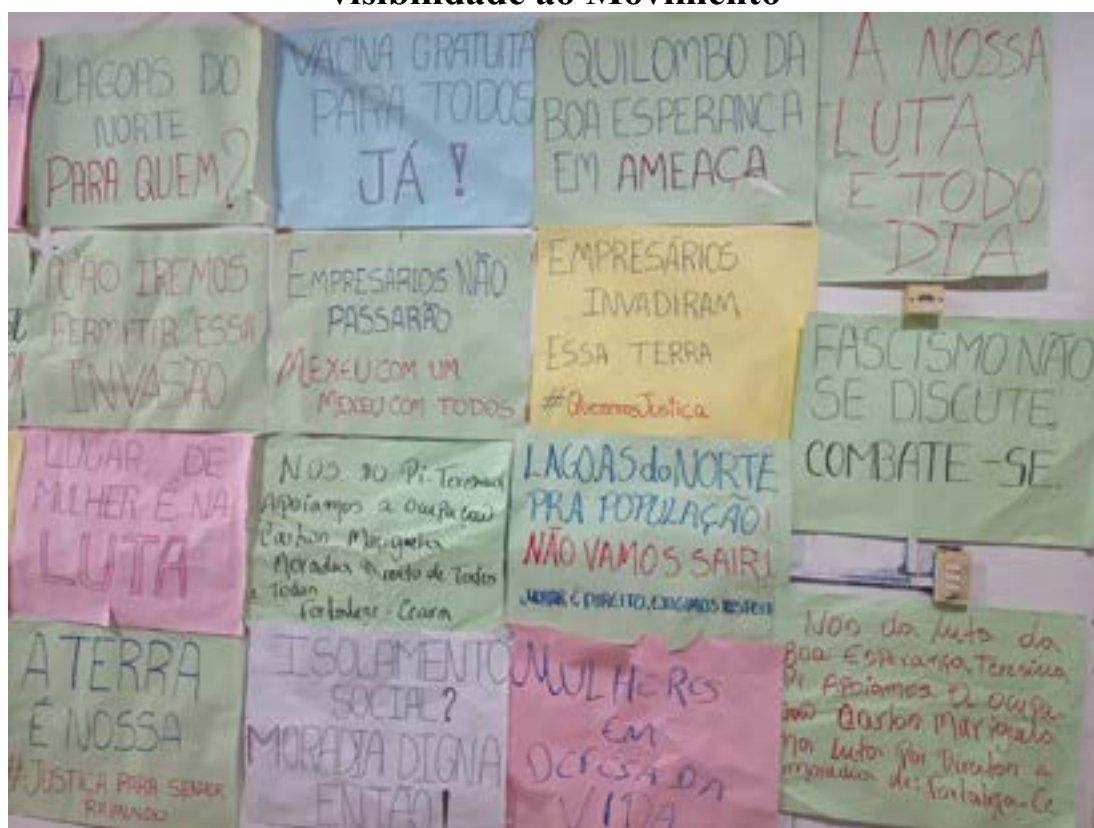 visibilidade ao Movimento
LAGOAS DO
NORTE
PARA QUEM?
VACINA GRATUITA
PARA TODOS
JÁ !
QUILOMBO DA
BOA ESPERANÇA
EM AMEAÇA
A NOSSA
LUTA
É TODO
DIA
NÃO IREMOS
PERMITIR ESSA
INVASÃO
EMPRESÁRIOS NÃO
PASSARÃO
MEXEU COM UM
MEXEU COM TODOS
EMPRESÁRIOS
INVADIRAM
ESSA TERRA
#QueremosJustiça
FASCISMO NÃO
SE DISCUTE
COMBATE-SE.
LUGAR DE
MULHER É NA
LUTA
NÓS DO Pi-Teresina
Apoiamos a Ocupação
Carlos
Moradia Direito de Todos
e Todas
Fortaleza-Ceara
LAGOAS do NORTE
PRA POPULAÇÃO!
NÃO VAMOS SAIR!
MORAR É DIREITO, EXIGIMOS RESPEITO
A TERRA
É NOSSA
#JUSTIÇA PARA SENHOR
RAIMUNDO
ISOLAMENTO
SOCIAL?
MORADIA DIGNA
ENTÃO!
MULHERES
EM
DEFESA DA
VIDA
Nós da luta da
Boa Esperança, Teresina
Pi Apoiamos a ocupa-
ção Carlos
na luta por Direitos a
moradia de: Fortaleza-Ce